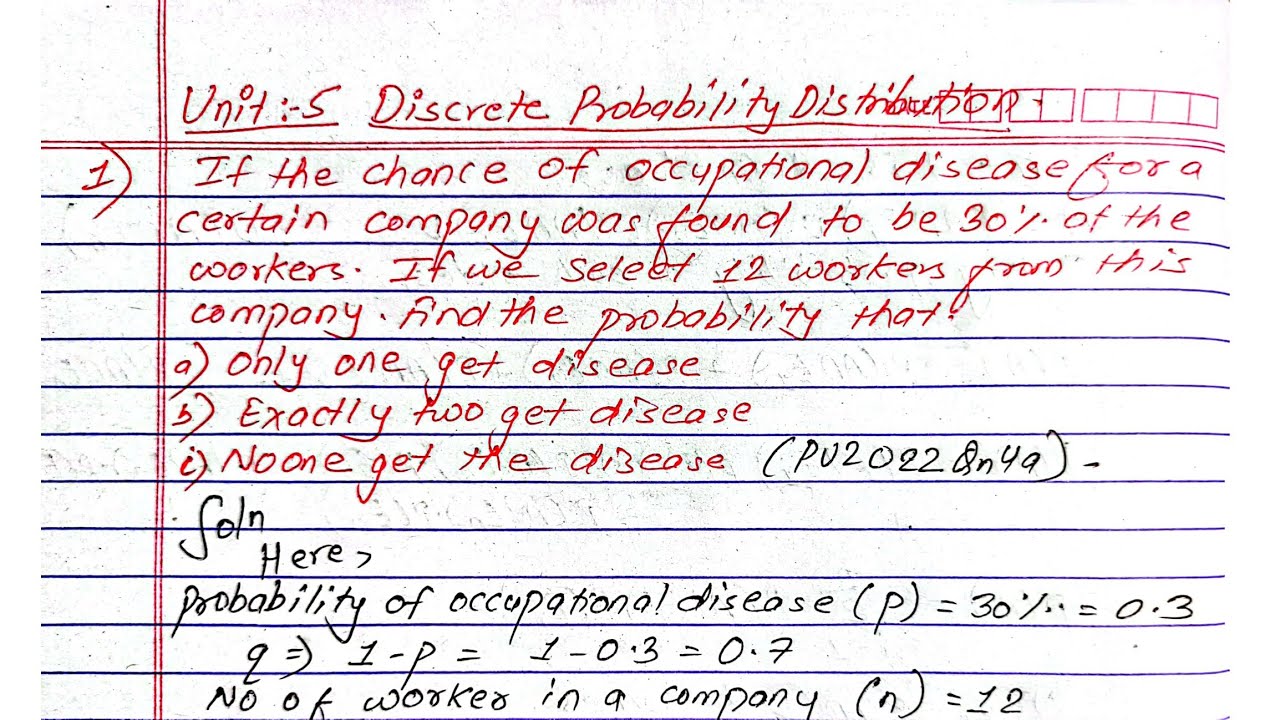 Unit:-5 Discrete Probability Distribution.
1) If the chance of occupational disease for a
certain company was found to be 30% of the
workers. If we select 12 workers from this
company. find the probability that.
a) only one get disease
b) Exactly two get disease
c) No one get the disease (PU2022 Qn4a) -
Soln
Here,
probability of occupational disease (p) = 30% = 0.3
q => 1-p = 1-0.3 = 0.7
No of worker in a company (n) = 12